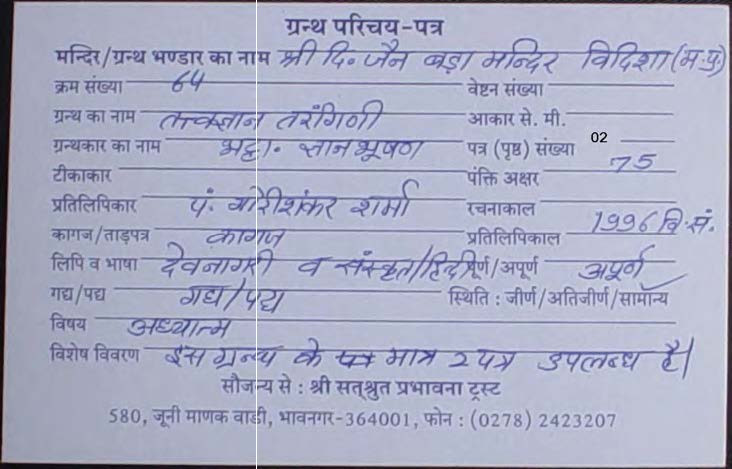 ग्रन्थ परिचय-पत्र
मन्दिर/ग्रन्थ भण्डार का नाम श्री दि. जैन बड़ा मन्दिर विदिशा (म.प्र.)
क्रम संख्या 64 वेष्टन संख्या
ग्रन्थ का नाम तत्वज्ञान तरंगिणी आकार से. मी.
ग्रन्थकार का नाम भट्टा. ज्ञानभूषण पत्र (पृष्ठ) संख्या 02
टीकाकार पंक्ति अक्षर 75
प्रतिलिपिकार पं. गोरीशंकर शर्मा रचनाकाल
कागज/ताड़पत्र कागज प्रतिलिपिकाल 1996 वि.सं.
लिपि व भाषा देवनागरी व संस्कृत/हिन्दी पूर्ण/अपूर्ण अपूर्ण
गद्य/पद्य गद्य/पद्य स्थिति : जीर्ण/अतिजीर्ण/सामान्य
विषय अध्यात्म
विशेष विवरण इस ग्रन्थ के मात्र 2 पत्र उपलब्ध है।
सौजन्य से : श्री सत्श्रुत प्रभावना ट्रस्ट
580, जूनी माणक वाडी, भावनगर-364001, फोन : (0278) 2423207